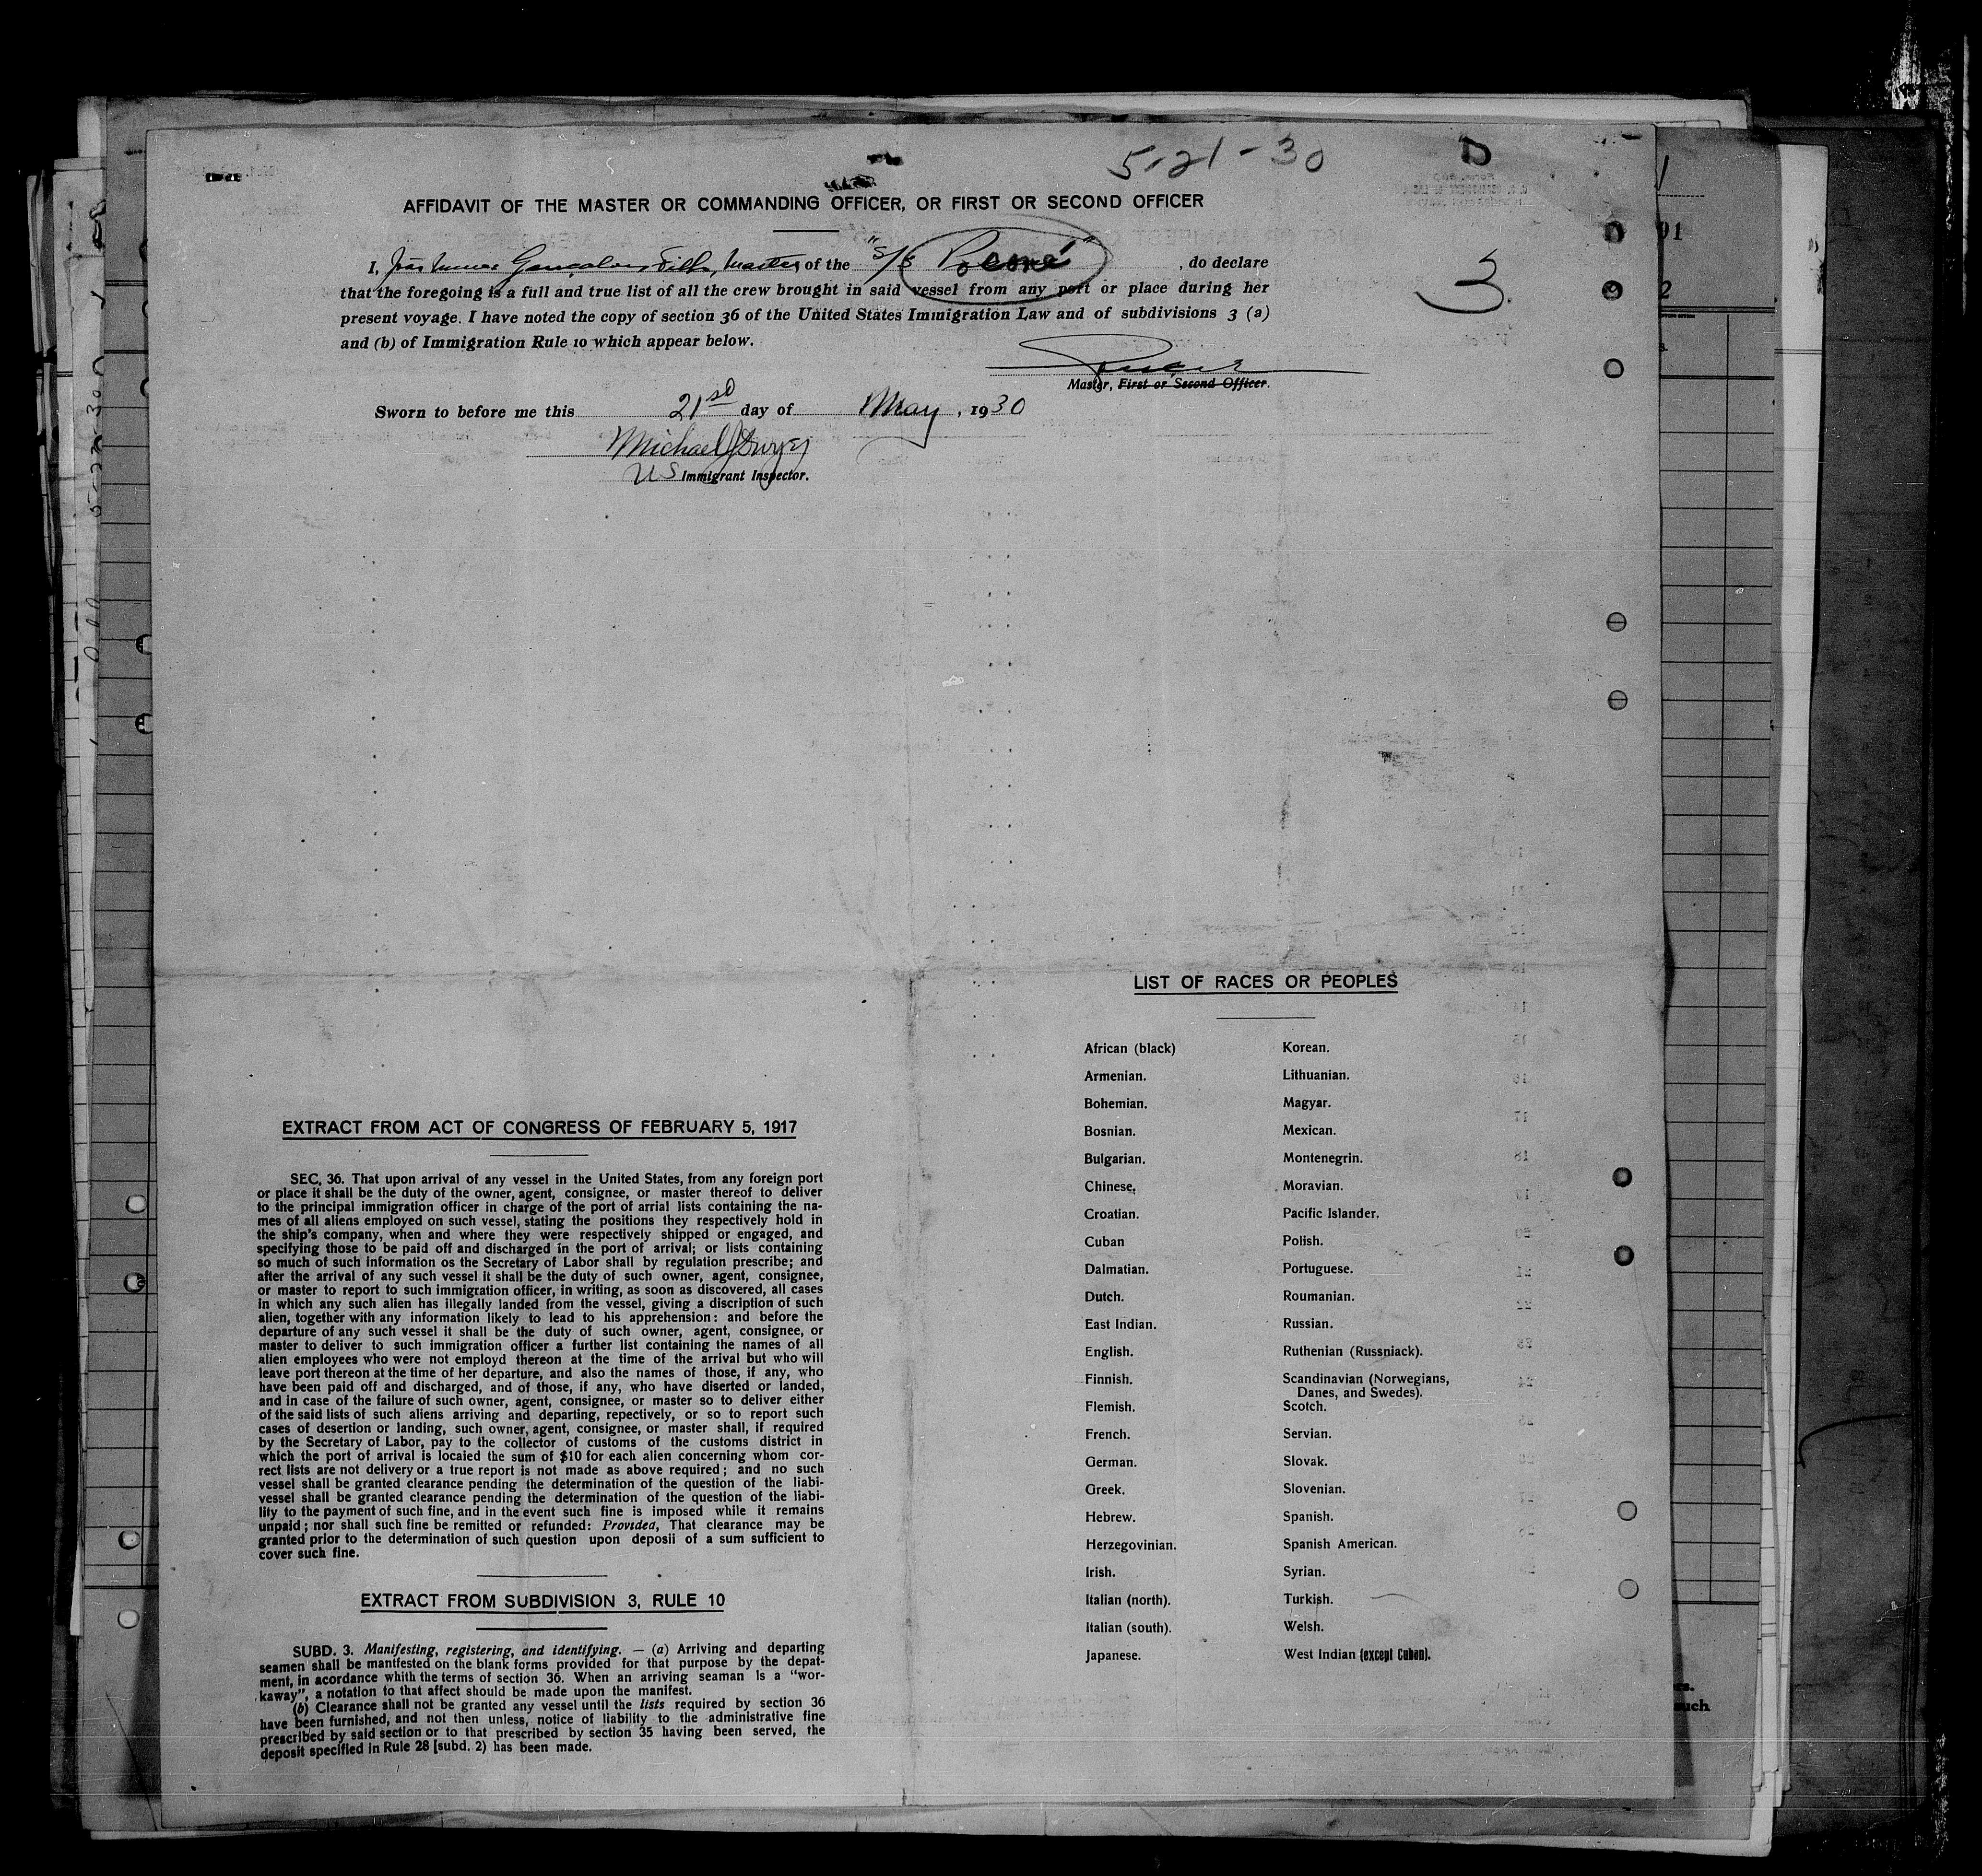 5-21-30
AFFIDAVIT OF THE MASTER OR COMMANDING OFFICER, OR FIRST OR SECOND OFFICER
I, Gonçalves Filho, Master of the "S/S Poconé", do declare
that the foregoing is a full and true list of all the crew brought in said vessel from any port or place during her
present voyage. I have noted the copy of section 36 of the United States Immigration Law and of subdivisions 3 (a)
and (b) of Immigration Rule 10 which appear below.
3.
Master, First or Second Officer.
Sworn to before me this 21st day of May, 1930
Michael J Dwyer
US Immigrant Inspector.
EXTRACT FROM ACT OF CONGRESS OF FEBRUARY 5, 1917
SEC. 36. That upon arrival of any vessel in the United States, from any foreign port
or place it shall be the duty of the owner, agent, consignee, or master thereof to deliver
to the principal immigration officer in charge of the port of arrial lists containing the na-
mes of all aliens employed on such vessel, stating the positions they respectively hold in
the ship's company, when and where they were respectively shipped or engaged, and
specifying those to be paid off and discharged in the port of arrival; or lists containing
so much of such information os the Secretary of Labor shall by regulation prescribe; and
after the arrival of any such vessel it shall be the duty of such owner, agent, consignee,
or master to report to such immigration officer, in writing, as soon as discovered, all cases
in which any such alien has illegally landed from the vessel, giving a discription of such
alien, together with any information likely to lead to his apprehension: and before the
departure of any such vessel it shall be the duty of such owner, agent, consignee, or
master to deliver to such immigration officer a further list containing the names of all
alien employees who were not employd thereon at the time of the arrival but who will
leave port thereon at the time of her departure, and also the names of those, if any, who
have been paid off and discharged, and of those, if any, who have diserted or landed,
and in case of the failure of such owner, agent, consignee, or master so to deliver either
of the said lists of such aliens arriving and departing, repectively, or so to report such
cases of desertion or landing, such owner, agent, consignee, or master shall, if required
by the Secretary of Labor, pay to the collector of customs of the customs district in
which the port of arrival is locaied the sum of $10 for each alien concerning whom cor-
rect lists are not delivery or a true report is not made as above required; and no such
vessel shall be granted clearance pending the determination of the question of the liabi-
vessel shall be granted clearance pending the determination of the question of the liabi-
lily to the payment of such fine, and in the event such fine is imposed while it remains
unpaid; nor shall such fine be remitted or refunded: Provided, That clearance may be
granted prior to the determination of such question upon deposii of a sum sufficient to
cover such fine.
EXTRACT FROM SUBDIVISION 3, RULE 10
SUBD. 3. Manifesting, registering, and identifying. — (a) Arriving and departing
seamen shall be mantfested on the blank forms provided for that purpose by the depat-
ment, in acordance whith the terms of section 36. When an arriving seaman is a "wor-
kaway", a notation to that affect should be made upon the manifest.
(b) Clearance shall not be granted any vessel until the lists required by section 36
have been furnished, and not then unless, notice of liability to the administrative fine
prescribed by said section or to that prescribed by section 35 having been served, the
deposit specified in Rule 28 [subd. 2) has been made.
LIST OF RACES OR PEOPLES
African (black)
Armenian.
Bohemian.
Bosnian.
Bulgarian.
Chinese.
Croatian.
Cuban
Dalmatian.
Dutch.
East Indian.
English.
Finnish.
Flemish.
French.
German.
Greek.
Hebrew.
Herzegovinian.
Irish.
Italian (north).
Italian (south).
Japanese.
Korean.
Lithuanian.
Magyar.
Mexican.
Montenegrin.
Moravian.
Pacific Islander.
Polish.
Portuguese.
Roumanian.
Russian.
Ruthenian (Russniack).
Scandinavian (Norwegians,
Danes, and Swedes).
Scotch.
Servian.
Slovak.
Slovenian.
Spanish.
Spanish American.
Syrian.
Turkish.
Welsh.
West Indian (except Cuban).